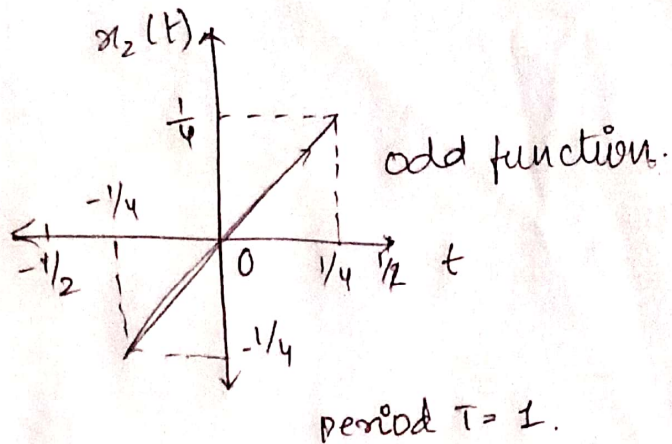 x₂(t)
1/4
odd function.
-1/4
-1/2
0
1/4
1/2
t
-1/4
period T = 1.